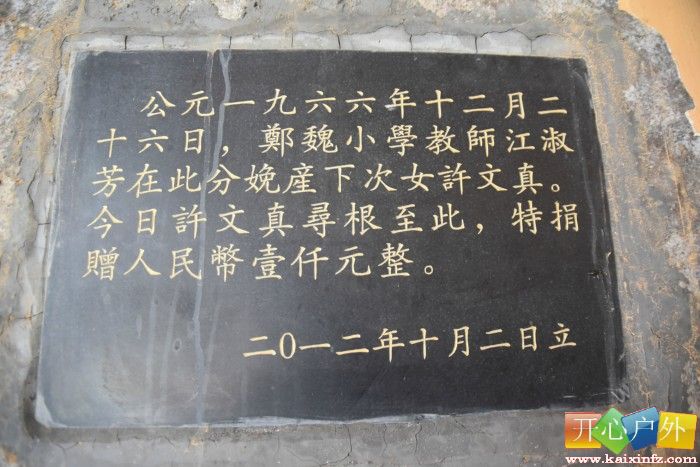 公元一九六六年十二月二
十六日，鄭魏小學教師江淑
芳在此分娩産下次女許文真。
今日許文真尋根至此，特捐
贈人民幣壹仟元整。
二0一二年十月二日立
开心户外
www.kaixinfz.com